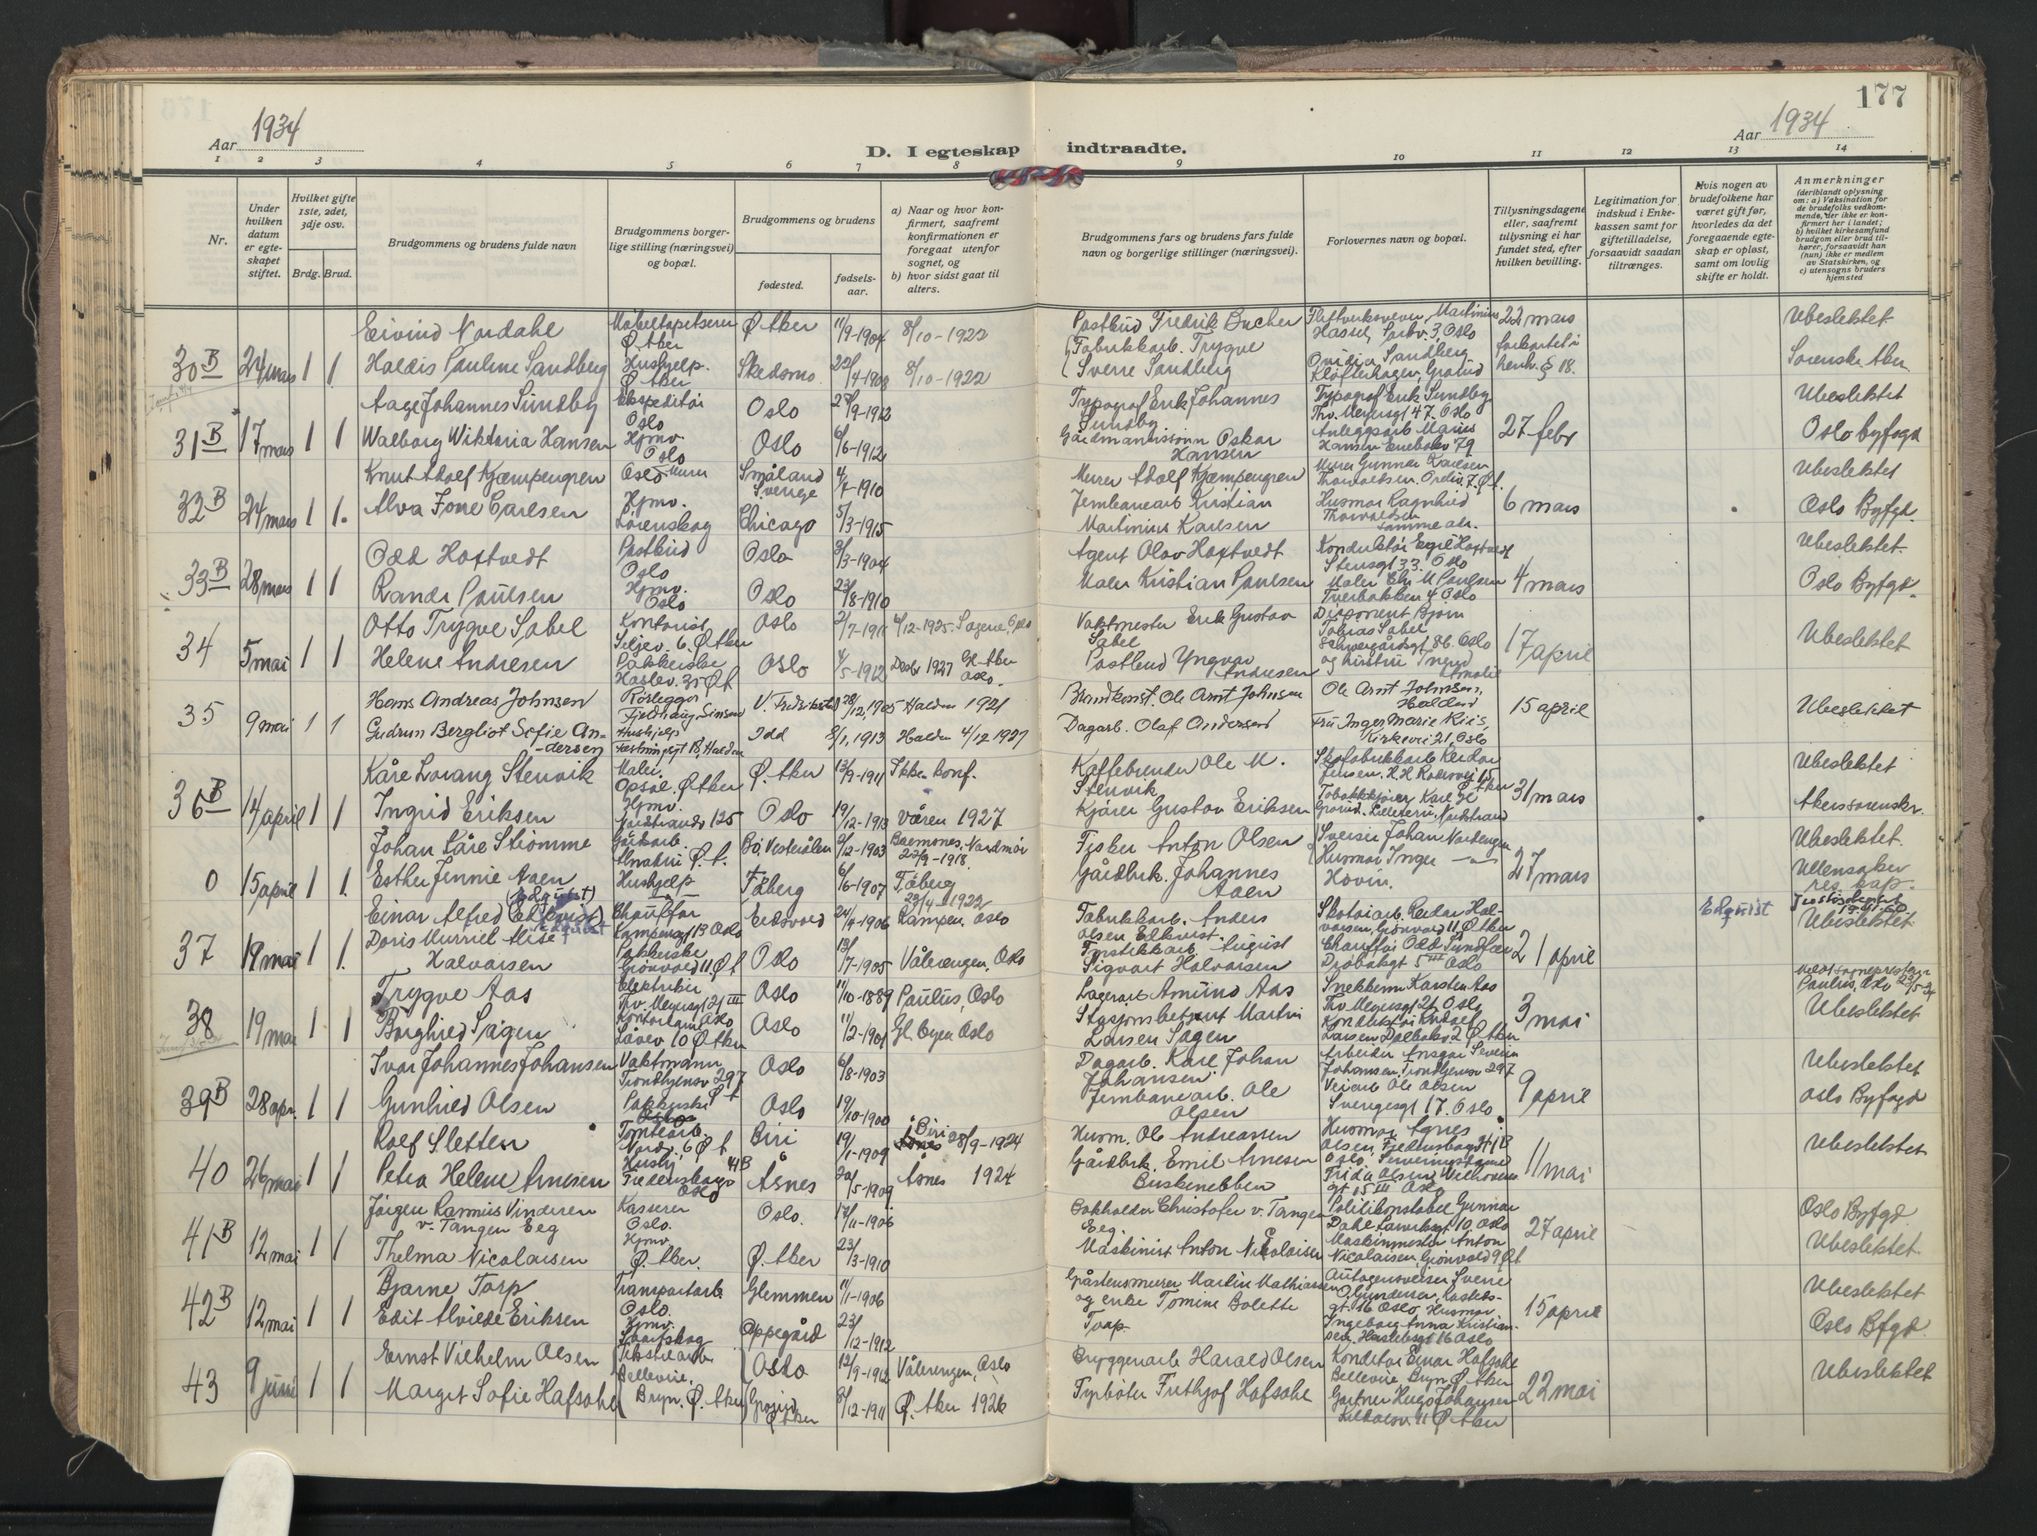 177
Aar 1934
D. I egteskap indtraadte.
Aar 1934
1 2 3 4 5 6 7 8 9 10 11 12 13 14
Nr.
Under hvilken datum er egteskapet stiftet.
Hvilket gifte 1ste, 2det, 3dje osv.
Brdg. Brud.
Brudgommens og brudens fulde navn
Brudgommens borgerlige stilling (næringsvei) og bopæl.
Brudgommens og brudens
fødested.
fødselsaar.
a) Naar og hvor konfirmert, saafremt konfirmationen er foregaat utenfor sognet, og
b) hvor sidst gaat til alters.
Brudgommens fars og brudens fars fulde navn og borgerlige stillinger (næringsvei).
Forlovernes navn og bopæl.
Tillysningsdagene eller, saafremt tillysning ei har fundet sted, efter hvilken bevilling.
Legitimation for indskud i Enkekassen samt for giftetilladelse, forsaavidt saadan tiltrænges.
Hvis nogen av brudefolkene har været gift før, hvorledes da det foregaaende egteskap er opløst, samt om lovlig skifte er holdt.
Anmerkninger
(deriblandt oplysning om: a) Vaksination for de brudefolks vedkommende, der ikke er konfirmert her i landet; b) hvilket kirkesamfund brudgom eller brud tilhører, forsaavidt han (hun) ikke er medlem av Statskirken, og c) utensogns bruders hjemsted
Eivind Nordahl Møbeltapetserer Ø. Aker 11/9-1904 8/10-1922 Postbud Fredrik Bucher 22 mars Ubeslektet
30B 24 mars 1 1 Haldis Pauline Sandberg Hushjelp Ø. Aker Skedsmo 8/10-1922 Fabrikkarb. Trygve Sverre Sandberg § 18. Sorenskr. Aker
Aage Johannes Sundby Ekspeditør Oslo Oslo Typograf Erik Johannes Sundby Typograf Erik Sundby Thv. Meyersgt 47. Oslo Ubeslektet
31B 17 mars 1 1 Walborg Wiktoria Hansen Hjmv. Oslo Oslo 6/6-1912 Oskar Hansen 27 febr Oslo byfogd
Knut Adolf Kjempengren Oslo Murer Småland Sverige Murer Adolf Kjempengren Murer Gunnar Karlsen Ubeslektet
32B 24 mars 1 1. Alva Ione Carlsen Hjmv. Lørenskog Chicago 5/3-1915 Jernbanearb Kristian Martinius Karlsen Husmor Ragnhild Thorvaldsen samme adr. 6 mars Oslo Byfgd.
Odd Hoftvedt Postbud Oslo Oslo 3/3-1904 Agent Olav Hoftvedt Konduktør Egil Hoftvedt Stensgt 33. Oslo Ubeslektet
33B 28 mars 1 1 Randi Paulsen Hjmv. Oslo Oslo 23/8-1910 Maler Kristian Paulsen Maler Chr. M Paulsen Tverbakken 4 Oslo 4 mars Oslo Byfgd.
Otto Trygve Sabel Kontorist Siljev. 6. Ø. Aker Oslo 2/7-1911 6/12-1925. Sagene, Oslo Vaktmester Erik Gustav Sabel Disponent Bjørn Tobias Sabel Schweigårdsgt 86. Oslo
34 5 mai 1 1 Helene Andresen Pakkerske Haslev. 35 Ø. A Oslo 4/5-1912 Desbr 1927 Gl. Aker Oslo. Postbud Yngvar Andresen og hustru Ingrid Amalie 17 april Ubeslektet
35 9 mai 1 1 Hans Andreas Johnsen Rørlegger V. Fredrikstad 28/12, 1905 Halden 1921 Ole Arnt Johnsen Ole Arnt Johnsen, Halden 15 april Ubeslektet
Gudrun Bergliot Sofie Andersen Hushjelp Festningsgt 18, Halden Idd 8/1, 1913 Halden 4/12 1927 Dagarb. Olaf Andersen Fru Inger Marie Riis, Kirkevei 21, Oslo
Kåre Lorang Stenvik Maler. Opsal. Ø. Aker Ø. Aker 13/9-1911 Ikke konf. Kaffebrenner Ole M. Stenvik Skofabrikkarb. Reidar Jensen. Ubeslektet
36B 14 april 1 1 Ingrid Eriksen Hjmv. Nordstrandv 125 Oslo 19/12-1913 våren 1927 Kjører Gustav Eriksen 31 mars Akerssorenskr.
Johan Kåre Strømme Gårdarb. Ø. A. Bø, Vesterålen 2/12-1903 Bremsnes, Nordmør -1918. Fisker Anton Olsen Johan Nordengen Ubeslektet.
0 15 april 1 1. Esther Jennie Aaen Hushjelp Fåberg 6/6-1907 Fåberg 1922 Gårdbr. Johannes Aaen Husmor Inger Hovin. 27 mars Ullensaker res. kap.
Einar Alfred (Edkvist) (Edquist) Edquist Chauffør Kampensgt 13 Oslo Eidsvold 24/4-1906 Kampen, Oslo Fabrikkarb. Anders Olsen Edkvist. Skotøiarb. Reidar Halvorsen, Grønvold 11 Ø. Aker Edquist Ubeslektet
37 19 mai 1 1. Doris Murriel Alise Halvorsen Pakkerske Grønvold 11 Ø. A Oslo 13/7-1905 Vålerengen. Oslo August Sigvart Halvorsen Chauffør Odd Drøbakgt 5 III Oslo 21 april
Trygve Aas Elektriker Thv. Meyersgt 21 III Oslo Oslo 11/10-1889 Paulus, Oslo Lagerarb Amund Aas Snekkerm Karsten Aas Thv Meyersgt 21 Oslo Paulus, Oslo
38 19 mai 1 1 Borghild Sagen Låvev 10 Ø. Aker Oslo 11/2-1901 Gl. Byen Oslo Stasjonsbetjent Martin Larsen Sagen Larsen Dalbakv 2 Ø. Aker 3 mai Ubeslektet
Ivar Johannes Johansen Vaktmann Trondhjemsv 297 Oslo 6/8-1903 Dagarb. Karl Johan Johansen Arbeider Ansgar Severin Johansen, Trondhjemsv 297 Ubeslektet
39B 28 apr. 1 1 Gunhild Olsen Pakkerske Oslo Oslo 19/10-1900 Jernbanearb. Ole Olsen Veiarb Ole Olsen Sverigesgt 17. Oslo 9 april Oslo Byfogd
Rolf Sletten Tomtearb. Nordv. 6 Ø. A. Biri 19/1-1909 i Biri 28/9-1924 Husm. Ole Andreassen Husmor Agnes Olsen, Fredensborgv 41B Oslo. Ubeslektet
40 26 mai 1 1 Petra Helene Arnesen Hushj. Fredensborgv 41B Oslo Åsnes 20/5-1909 Åsnes 1924 Gårdbr. Emil Arnesen Buskenebben Frida Olsen Wilh gt 15 III Oslo 11 mai
Jørgen Rasmus Vinderen v. Tangen Eeg Kasserer Oslo. Oslo. 17/11-1906 Bokholder Christofer v. Tangen Eeg. Politikonstabel Gunnar Dahl 10, Oslo Oslo Byfgd.
41B 12 mai 1 1 Thelma Nicolaisen Hjmv. Ø. Aker. Ø. Aker 23/3-1910 Maskinist Anton Nicolaisen Maskinmester Anton Nicolaisen, Grønvold 9 Ø. A 27 april Ubeslektet.
Bjarne Torp Transportarb. Oslo. Glemmen 11/1-1906 Gråstensmurer Martin Mathiassen og enke Tomine Bolette Torp Autogensveiser Sverre Gundersen, Ubeslektet
42B 12 mai 1 1 Edit Alvilde Eriksen Hjmv. Oppegård 23/12-1912 Ingeborg Anna Kristiansen, 16 Oslo 15 april Oslo Bfgd.
Ernst Vilhelm Olsen Tekstilarb. Bellevue, Oslo 12/9-1912 Vålerengen, Oslo Bryggeriarb Harald Olsen Konditor Einar Hafsahl Bellevue Bryn Ø. Aker Ubeslektet
43 9 juni 1 1 Marget Sofie Hafsahl Bryn. Ø. Aker Ø. Aker 8/12-1911 Ø. Aker 1926 Typbøter Frithjof Hafsahl Gartner Hugo Johansen 11 Ø. Aker 22 mai